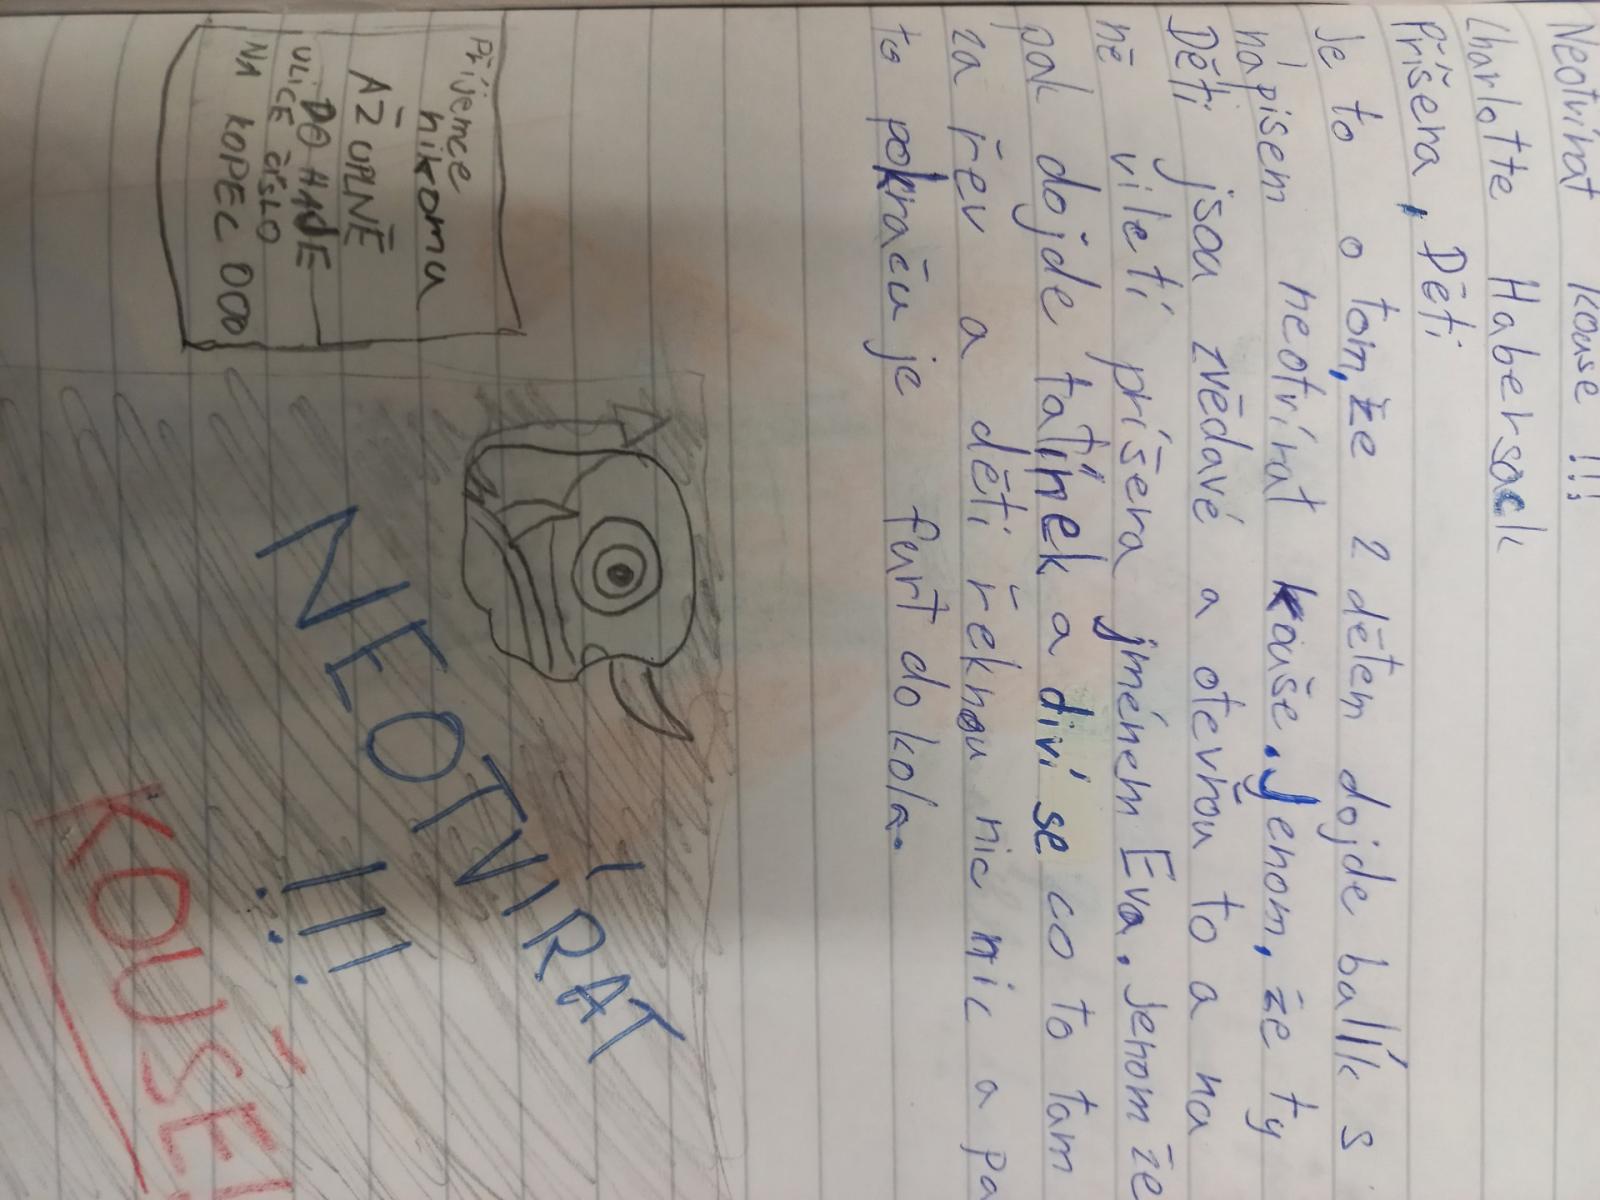 Neotvírat kouše !!!
Charlotte Habersack
Příšera, Děti
Je to o tom, že 2 dětem dojde balík s
nápisem neotvírat kouše. Jenom, že ty
Děti jsou zvědavé a otevřou to a na
ně viletí príšera jménem Eva. Jenom že
pak dojde tatínek a diví se co to tam
za řev a děti řeknou nic nic a pa
to pokračuje furt do kola.
Příjemce
nikomu
AŽ ÚPLNĚ
DO HAJE
ULICE ČÍSLO
NA KOPEC 000
NEOTVÍRAT
!!!
KOUŠE!